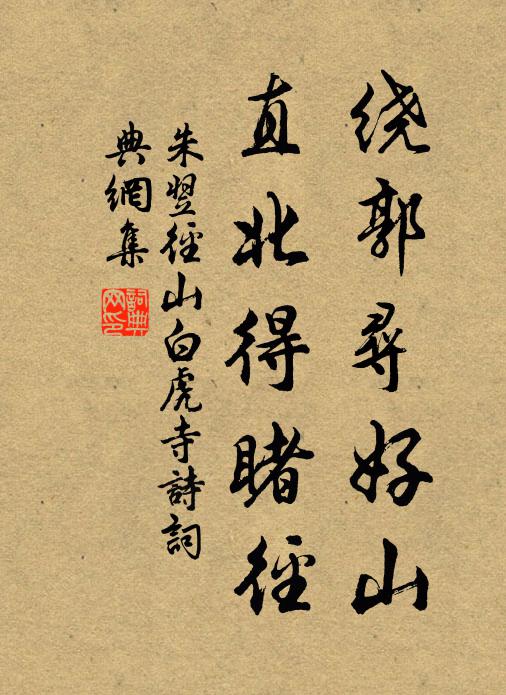 绕郭寻好山
直北得睹径
朱翌径山白虎寺詩詞
典網集
詞典
网印